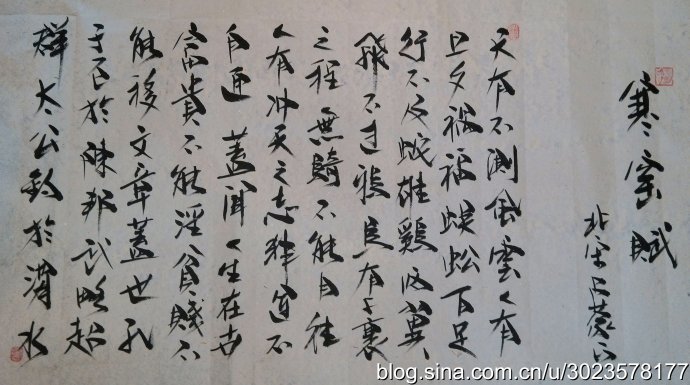 寒窑賦
北宋吕蒙正
天有不測風雲人有
旦夕禍福蜈蚣百足
行不及蛇雄鷄两翼
飛不过鴉馬有千裏
之程無騎不能自往
人有冲天之志非运不
自通 蓋聞人生在世
富貴不能淫貧賤不
能移文章蓋世孔
子厄於陳邦武略超
群太公釣於渭水
blog.sina.com.cn/u/3023578177